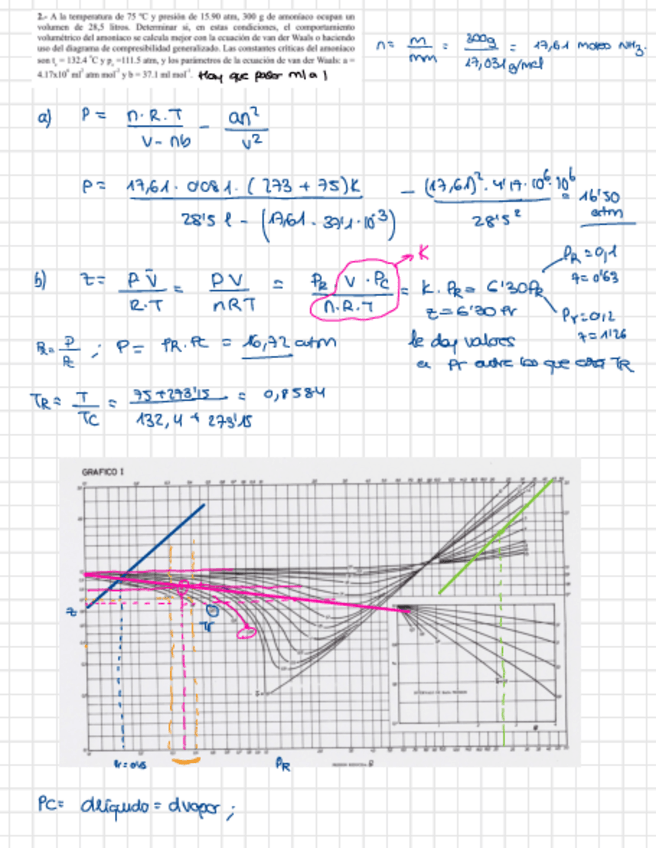 2.- A la temperatura de 75 ºC y presión de 15.90 atm, 300 g de amoníaco ocupan un
volumen de 28,5 litros. Determinar si, en estas condiciones, el comportamiento
volumétrico del amoníaco se calcula mejor con la ecuación de van der Waals o haciendo
uso del diagrama de compresibilidad generalizado. Las constantes críticas del amoníaco
son t_c = 132.4 ºC y p_c =111.5 atm, y los parámetros de la ecuación de van der Waals: a =
4.17x10⁶ ml² atm mol⁻² y b = 37.1 ml mol⁻¹. Hay que pasar ml a l
n = m/mm = 300g / 17,031g/mol = 17,61 moles NH3.
a) P = n.R.T / V - nb - an² / V²
P = 17,61 . 0'081 . (273 + 75)K / 28'5 l - (17,61 . 37'1 . 10⁻³) - (17,61)² . 4'17 . 10⁶ . 10⁻⁶ / 28'5² = 16'50 atm
b) z = P V̄ / R.T = PV / nRT = PR . V . PC / n.R.T = K . PR = 6'30PR
K
z = 6'30 Pr
PR = 0,1
z = 0'63
Pr = 0,2
z = 1'26
le doy valores
a Pr entre los que está TR
PR = P / Pc ; P = PR . PC = 16,72 atm
TR = T / TC = 75+273'15 / 132,4 + 273'15 = 0,8584
GRAFICO I
z
Tr
PR
PC = dlíquido = dvapor ;